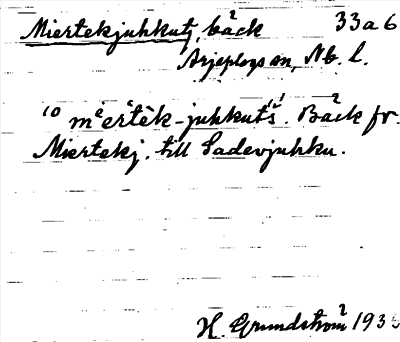 Miertekjuhkutj, bäck 33a6
Arjeplogs sn, Nb. l.
10 mⁱeᵉrtēk-juhkutˢ́. Bäck fr.
Miertekj. till Sadevjuhku.
H. Grundström 193